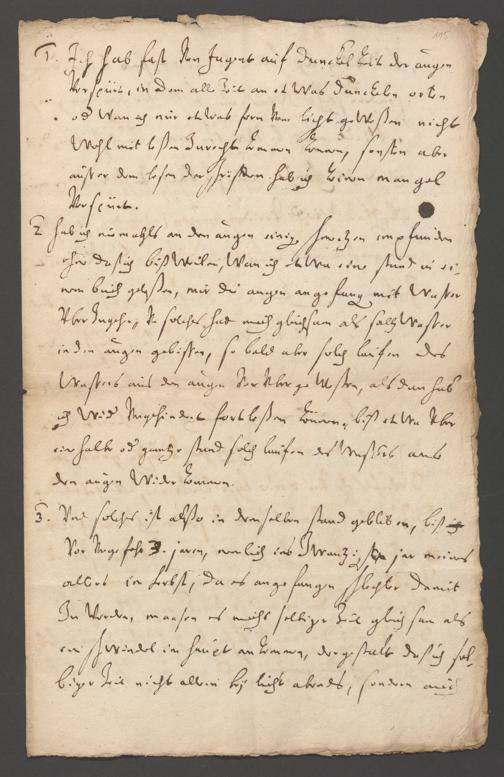 115
1. Ich hab fast von Jugent auf dunckelheit der augen
verspürt, in dem alle Zeit an etwas dunckeln orten
od wan ich nur etwas fern vom licht gewessen nicht
wohl mit lessen Zurecht kommen können, sonsten aber
ausser dem lesen der schrifften hab ich keinen mangel
verspürt.
2 hab ich niemahls an den augen einig schmertzen empfunden
ohn das ich bissweilen, wan ich etwa eine stund in ei-
nem buch gelessen, mir die augen angefang mit wasser
uber Zugehen, solches hat mich gleichsam als saltzwasser
in den augen gebissen, so bald aber solch lauffen des
wassers aus den augen voruber gewessen, als dan hab
ich wid ungehindert fort lessen können, biss etwa uber
ein halbe od gantze stund solch lauffen des wassers aus
den augen wider kommen.
3. Und solches ist also in demselben stand geblieben, biss
vor ungefehr 3. jaren, nemlich ins Zwantzigste jar meines
alters im herbst, da es angefangen schlechter damit
Zu werden, massen es mich selbiger Zeit gleichsam als
ein schwindel im haupt ankommen, dergestalt das ich sel-
biger Zeit nicht allein bey licht abends, sondern auch